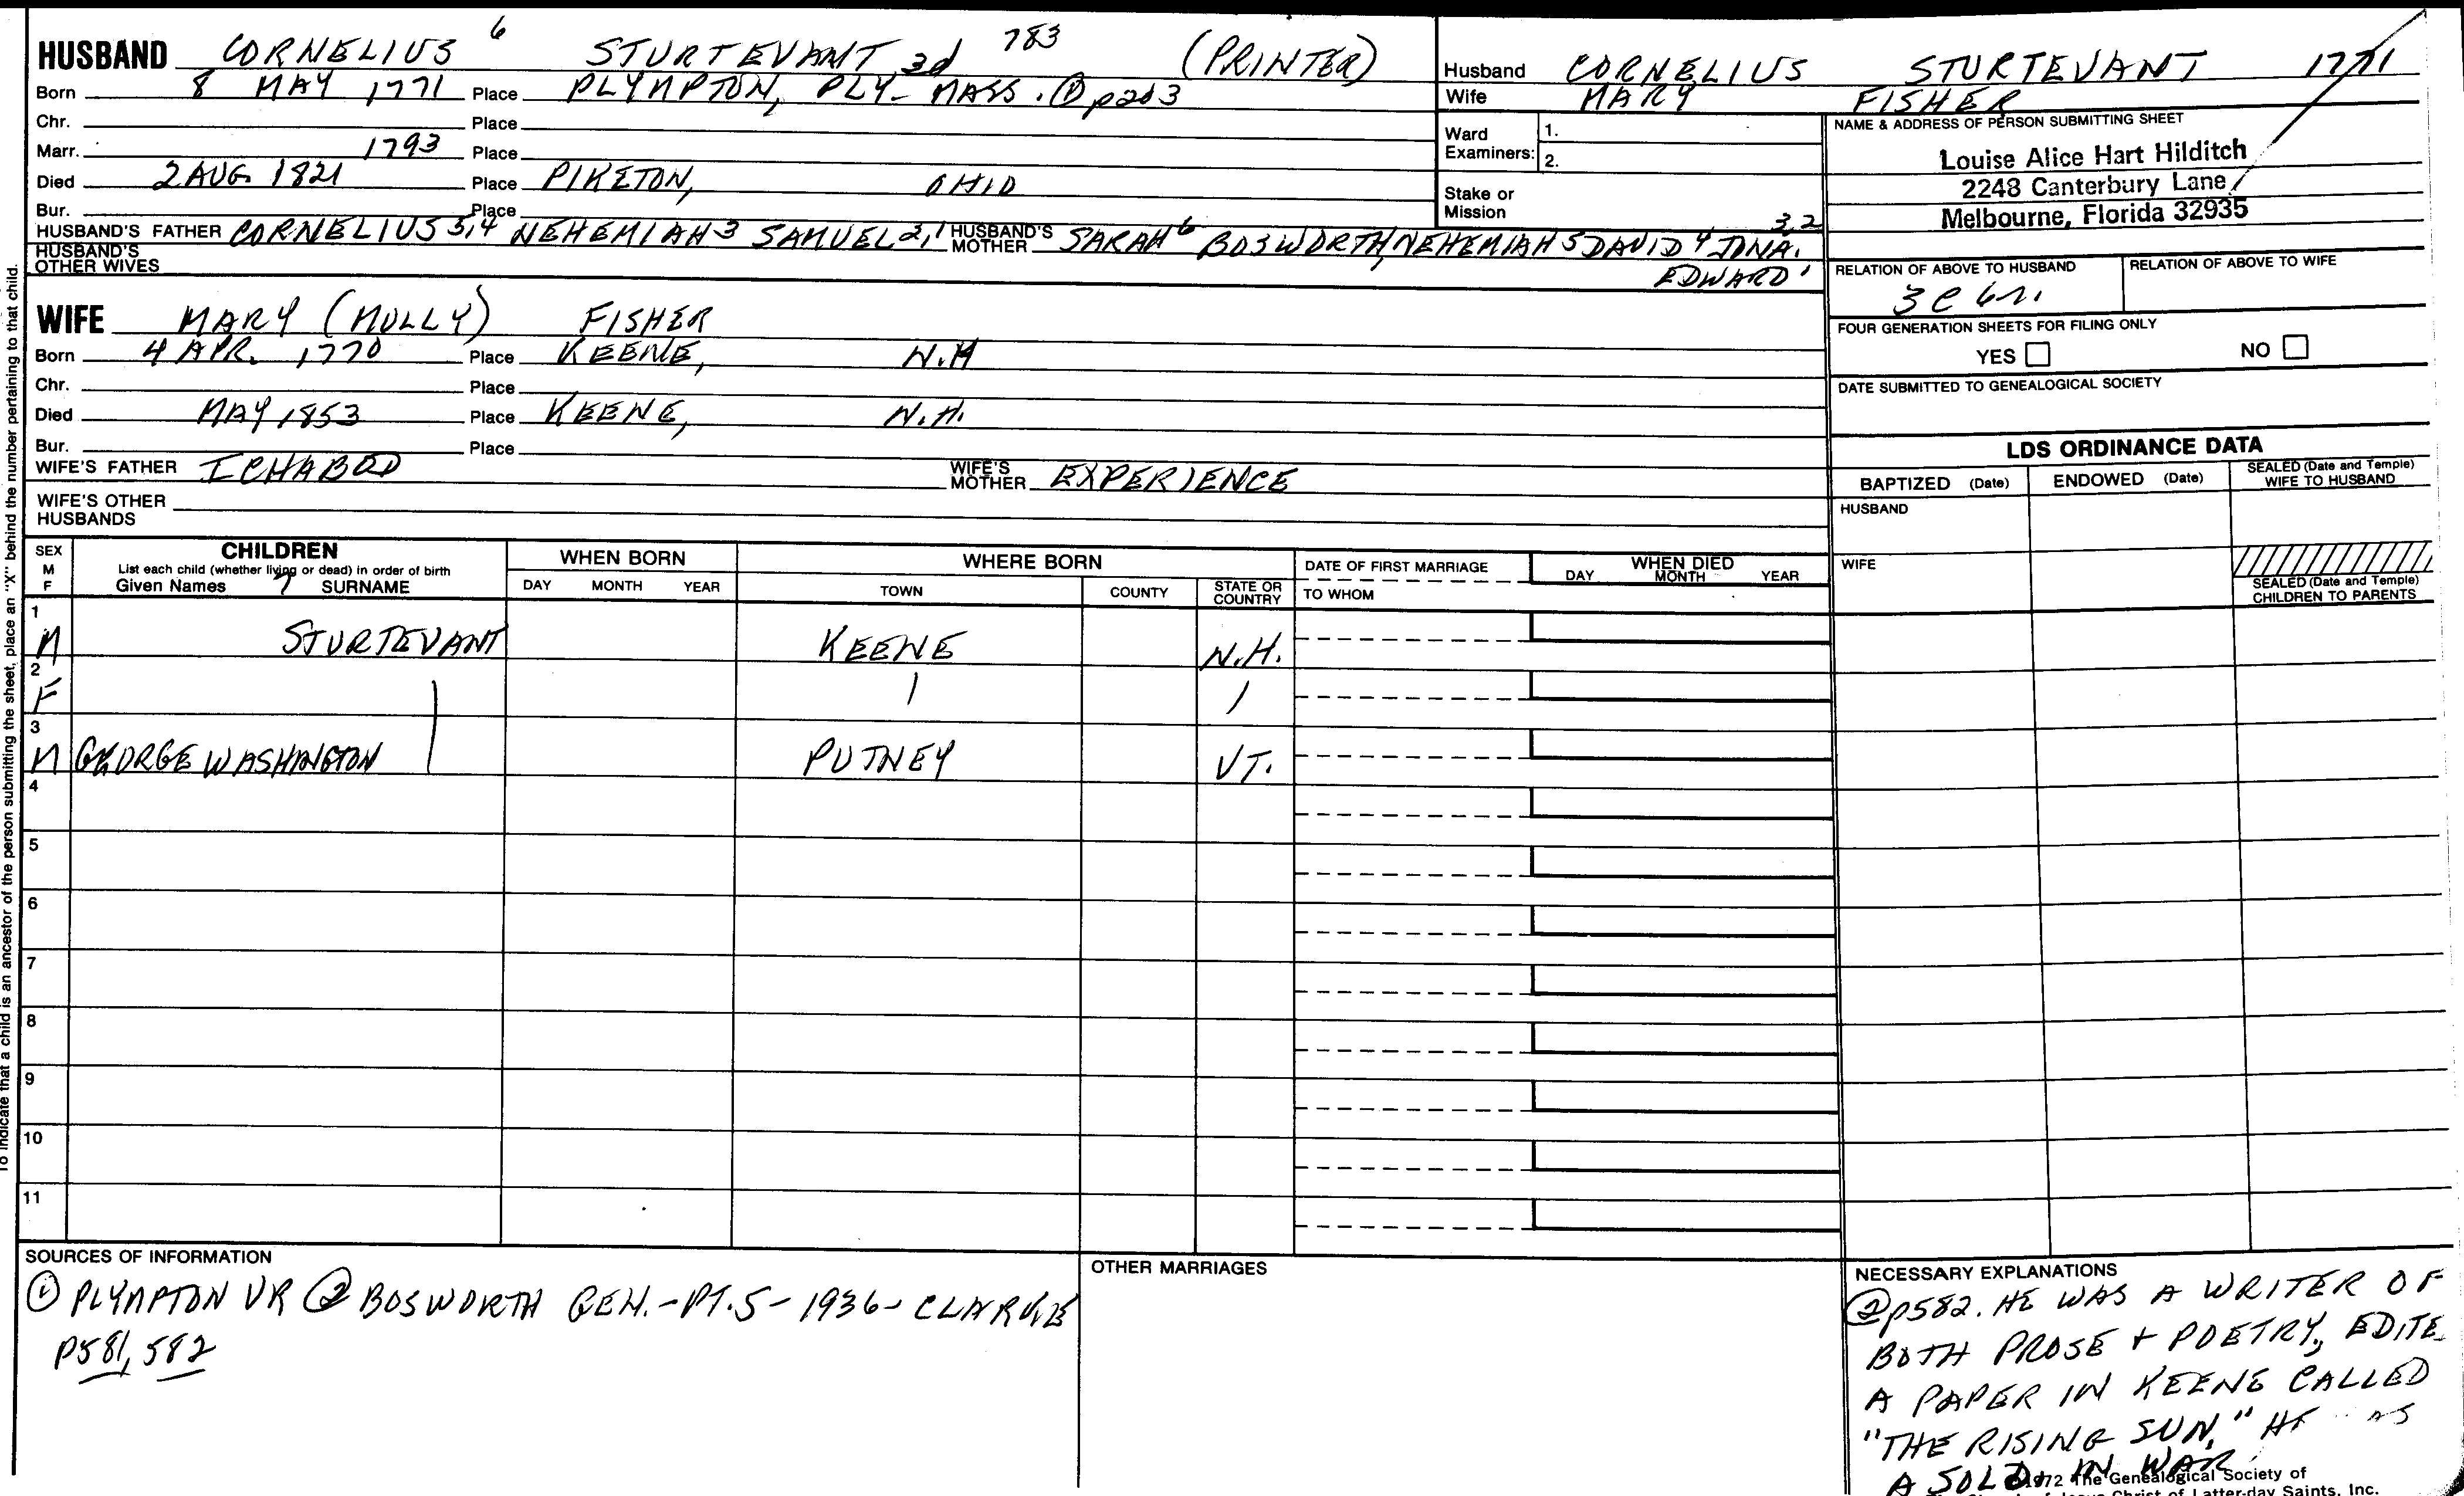 HUSBAND CORNELIUS 6 STURTEVANT 3d 783 (PRINTER)
Born 8 MAY 1771 Place PLYMPTON, PLY- MASS. ① p203
Chr. Place
Marr. 1793 Place
Died 2 AUG. 1821 Place PIKETON, OHIO
Bur. Place
HUSBAND'S FATHER CORNELIUS 5,4 NEHEMIAH 3 SAMUEL 2,1 HUSBAND'S MOTHER SARAH 6 BOSWORTH, NEHEMIAH 5 DAVID 4 JONA. 3,2
EDWARD 1
HUSBAND'S OTHER WIVES
WIFE MARY (MOLLY) FISHER
Born 4 APR. 1770 Place KEENE, N.H
Chr. Place
Died MAY 1853 Place KEENE, N.H.
Bur. Place
WIFE'S FATHER ICHABOD WIFE'S MOTHER EXPERIENCE
WIFE'S OTHER HUSBANDS
Husband CORNELIUS STURTEVANT 1771
Wife MARY FISHER
Ward Examiners: 1.
2.
Stake or Mission
NAME & ADDRESS OF PERSON SUBMITTING SHEET
Louise Alice Hart Hilditch
2248 Canterbury Lane
Melbourne, Florida 32935
RELATION OF ABOVE TO HUSBAND RELATION OF ABOVE TO WIFE
3C
FOUR GENERATION SHEETS FOR FILING ONLY
YES NO
DATE SUBMITTED TO GENEALOGICAL SOCIETY
LDS ORDINANCE DATA
BAPTIZED (Date) ENDOWED (Date) SEALED (Date and Temple) WIFE TO HUSBAND
HUSBAND
WIFE
SEALED (Date and Temple) CHILDREN TO PARENTS
SEX M F
CHILDREN
List each child (whether living or dead) in order of birth
Given Names SURNAME
WHEN BORN
DAY MONTH YEAR
WHERE BORN
TOWN COUNTY STATE OR COUNTRY
DATE OF FIRST MARRIAGE
TO WHOM
WHEN DIED
DAY MONTH YEAR
1 M STURTEVANT KEENE N.H.
2 F
3 M GEORGE WASHINGTON PUTNEY VT.
4
5
6
7
8
9
10
11
To indicate that a child is an ancestor of the person submitting the sheet, place an "X" behind the number pertaining to that child.
SOURCES OF INFORMATION
① PLYMPTON VR ② BOSWORTH GEN.-PT.5-1936- CLARKE
P581, 582
OTHER MARRIAGES
NECESSARY EXPLANATIONS
② p582. HE WAS A WRITER OF
BOTH PROSE + POETRY, EDITE
A PAPER IN KEENE CALLED
"THE RISING SUN." HE AS
A SOLD. IN WAR
1972 The Genealogical Society of
Christ of Latter-day Saints, Inc.